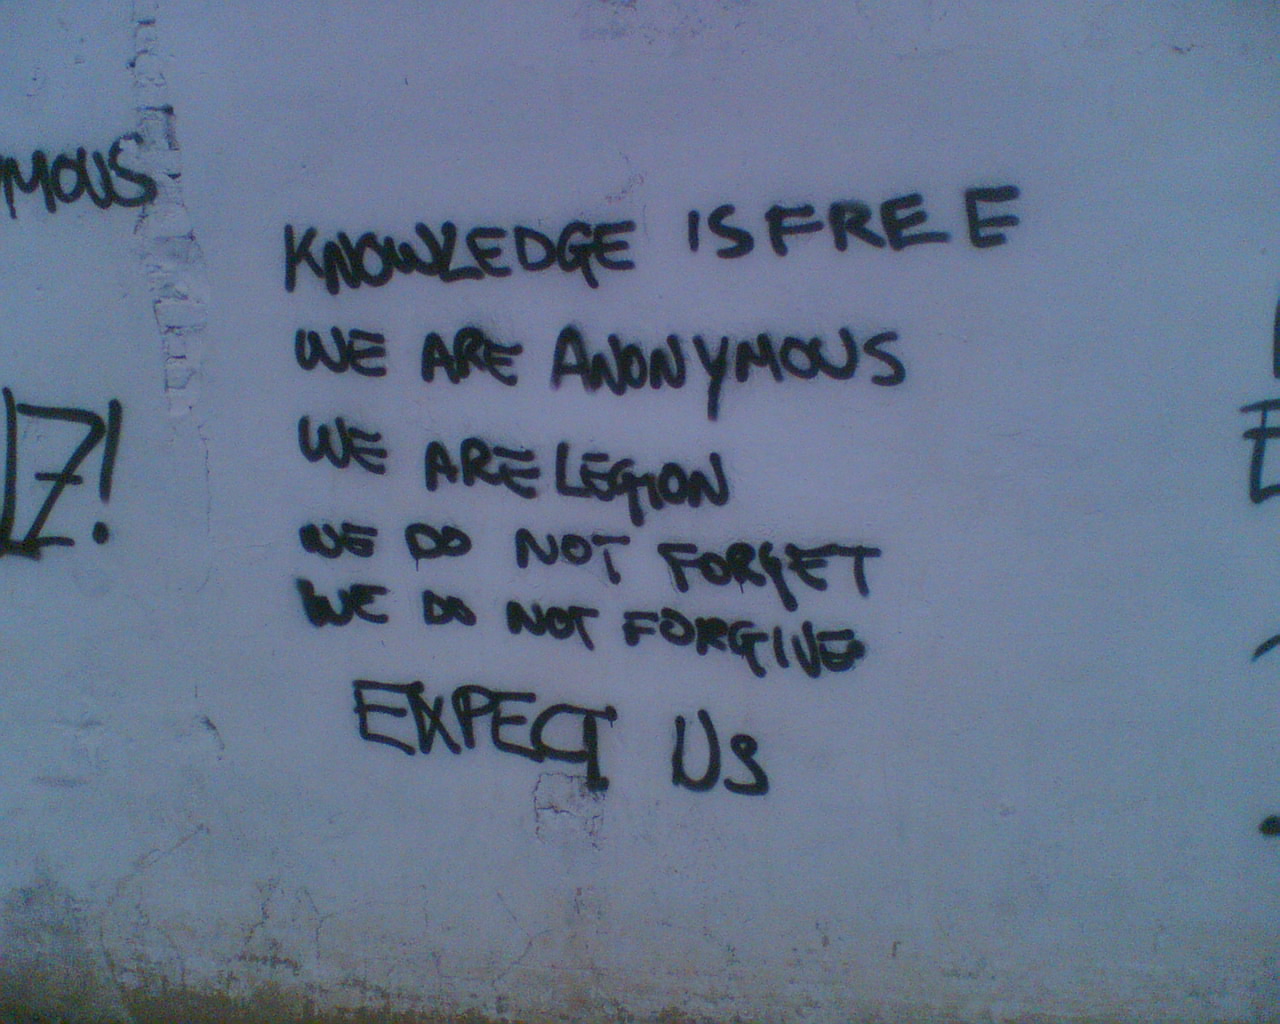 MOUS
17!
KNOWLEDGE IS FREE
WE ARE ANONYMOUS
WE ARE LEGION
WE DO NOT FORGET
WE DO NOT FORGIVE
EXPECT US